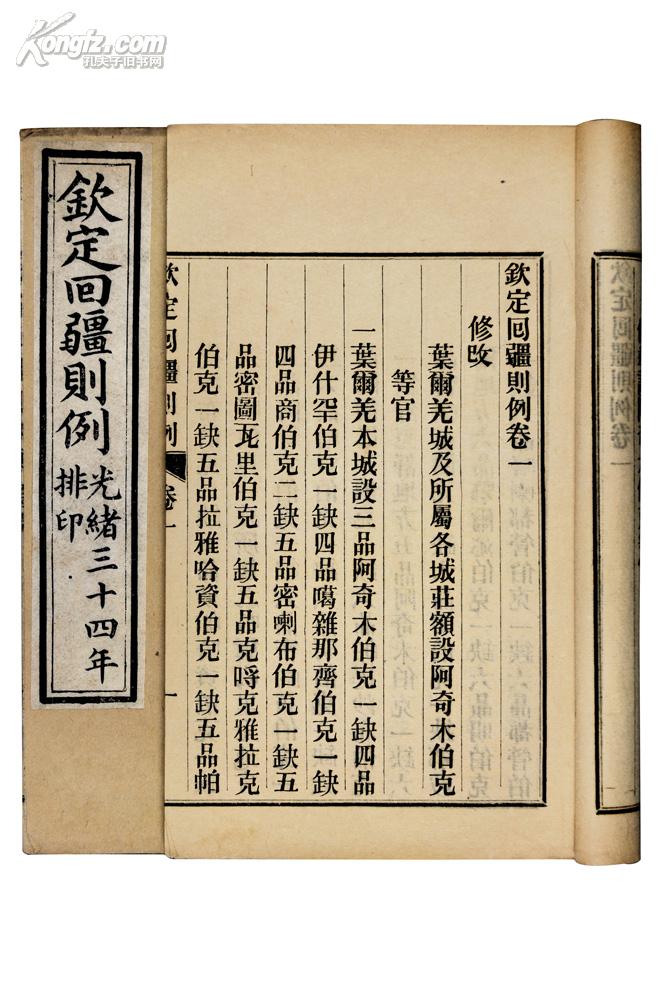 Kongfz.com
孔夫子旧书网
欽定回疆則例
光緒三十四年
排印
欽定回疆則例卷一
修改
葉爾羌城及所屬各城莊額設阿奇木伯克
等官
一葉爾羌本城設三品阿奇木伯克一缺四品
伊什罕伯克一缺四品噶雜那齊伯克一缺
四品商伯克二缺五品密喇布伯克一缺五
品密圖瓦里伯克一缺五品克哷克雅拉克
伯克一缺五品拉雅哈資伯克一缺五品帕
欽定回疆則例
卷一
一